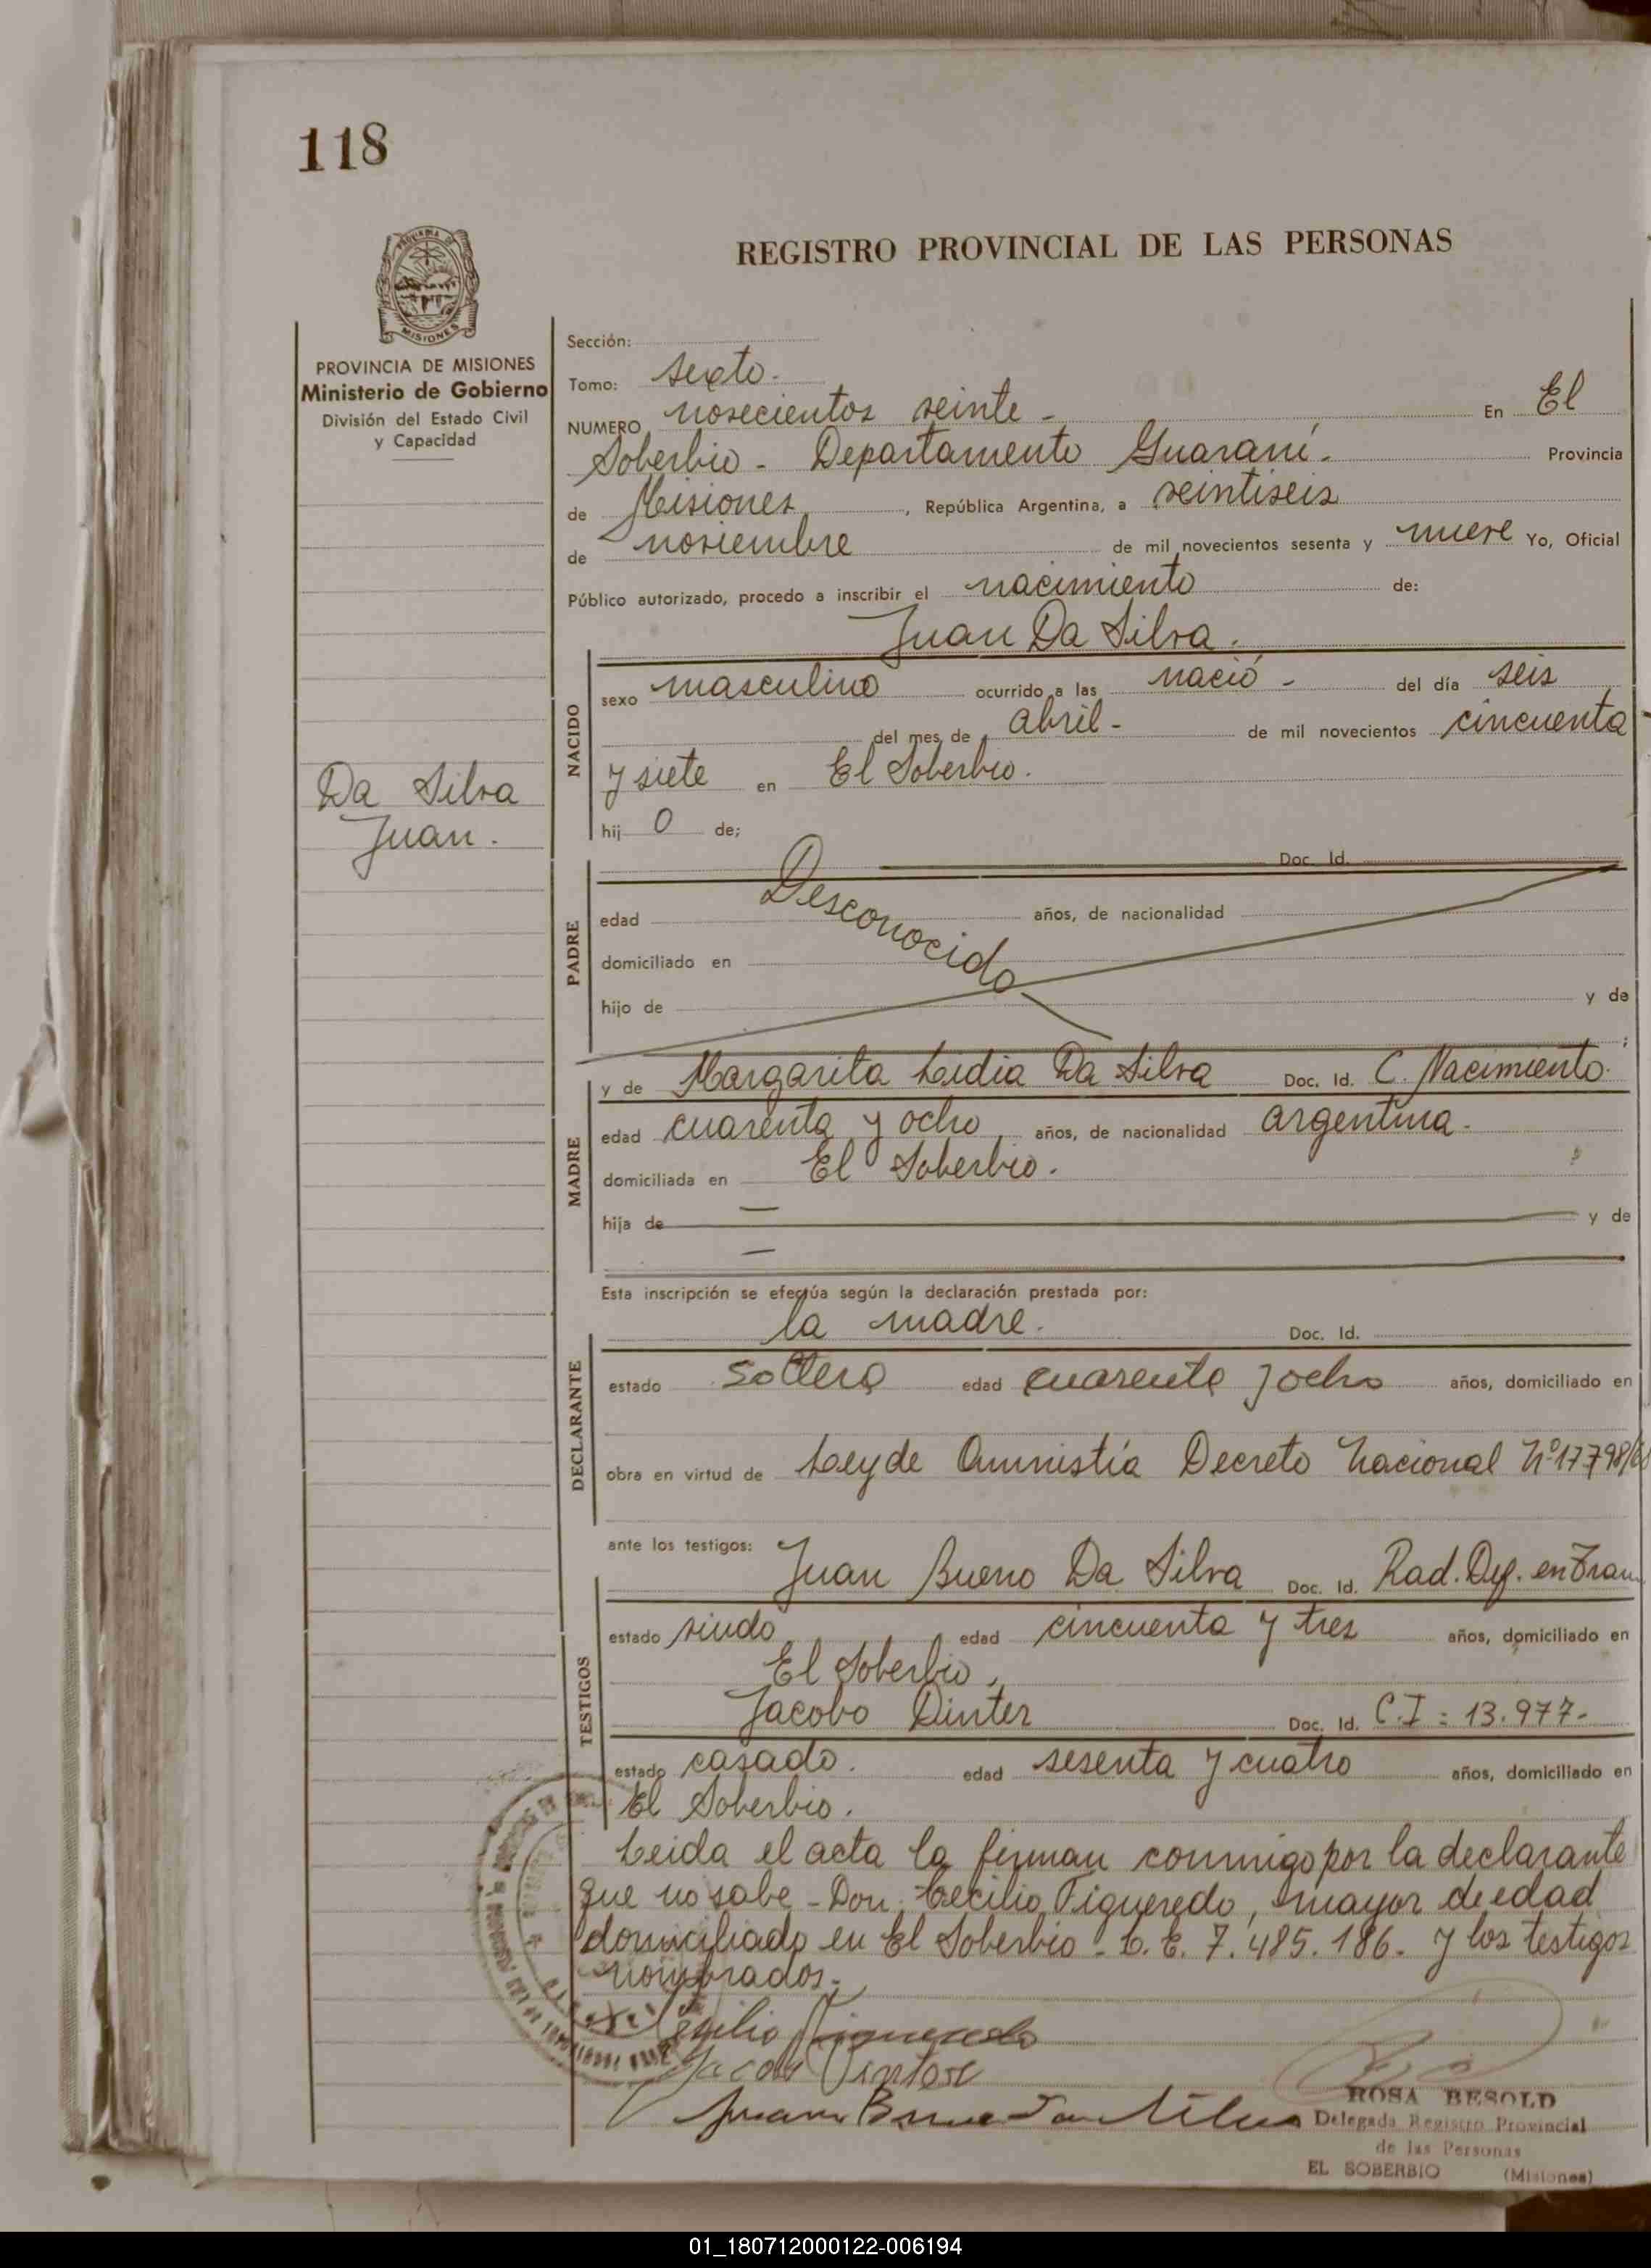 118
REGISTRO PROVINCIAL DE LAS PERSONAS
PROVINCIA DE MISIONES
Ministerio de Gobierno
División del Estado Civil
y Capacidad
Sección:
Tomo: sexto.
NUMERO novecientos veinte - En El
Soberbio - Departamento Guaraní. Provincia
de Misiones, República Argentina, a veintiseis
de noviembre de mil novecientos sesenta y nueve Yo, Oficial
Público autorizado, procedo a inscribir el nacimiento de:
Juan Da Silva.
NACIDO
sexo masculino ocurrido a las nació - del día seis
del mes de abril - de mil novecientos cincuenta
y siete en El Soberbio.
Da Silva
Juan.
hij o de;
PADRE
Doc. Id.
Desconocido
edad años, de nacionalidad
domiciliado en
hijo de y de
;
MADRE
y de Margarita Lidia Da Silva Doc. Id. C. Nacimiento.
edad cuarenta y ocho años, de nacionalidad argentina.
domiciliada en El Soberbio.
hija de — y de
—
Esta inscripción se efectúa según la declaración prestada por:
DECLARANTE
la madre. Doc. Id.
estado soltera edad cuarenta y ocho años, domiciliado en
obra en virtud de Ley de Amnistía Decreto Nacional Nº 17798/68
ante los testigos:
TESTIGOS
Juan Bueno Da Silva Doc. Id. Rad. Def. en Tram
estado viudo edad cincuenta y tres años, domiciliado en
El Soberbio,
Jacobo Dinter Doc. Id. C.I: 13.977-
estado casado. edad sesenta y cuatro años, domiciliado en
El Soberbio.
Leida el acta la firman conmigo por la declarante
que no sabe - Don. Cecilio Figueredo, mayor de edad
domiciliado en El Soberbio - L.E. 7.485.186. y los testigos
nombrados.
Cecilio Figueredo
Jacob Dinter
Juan Bueno Da Silva
ROSA BESOLD
Delegada Registro Provincial
de las Personas
EL SOBERBIO (Misiones)
01_180712000122-006194